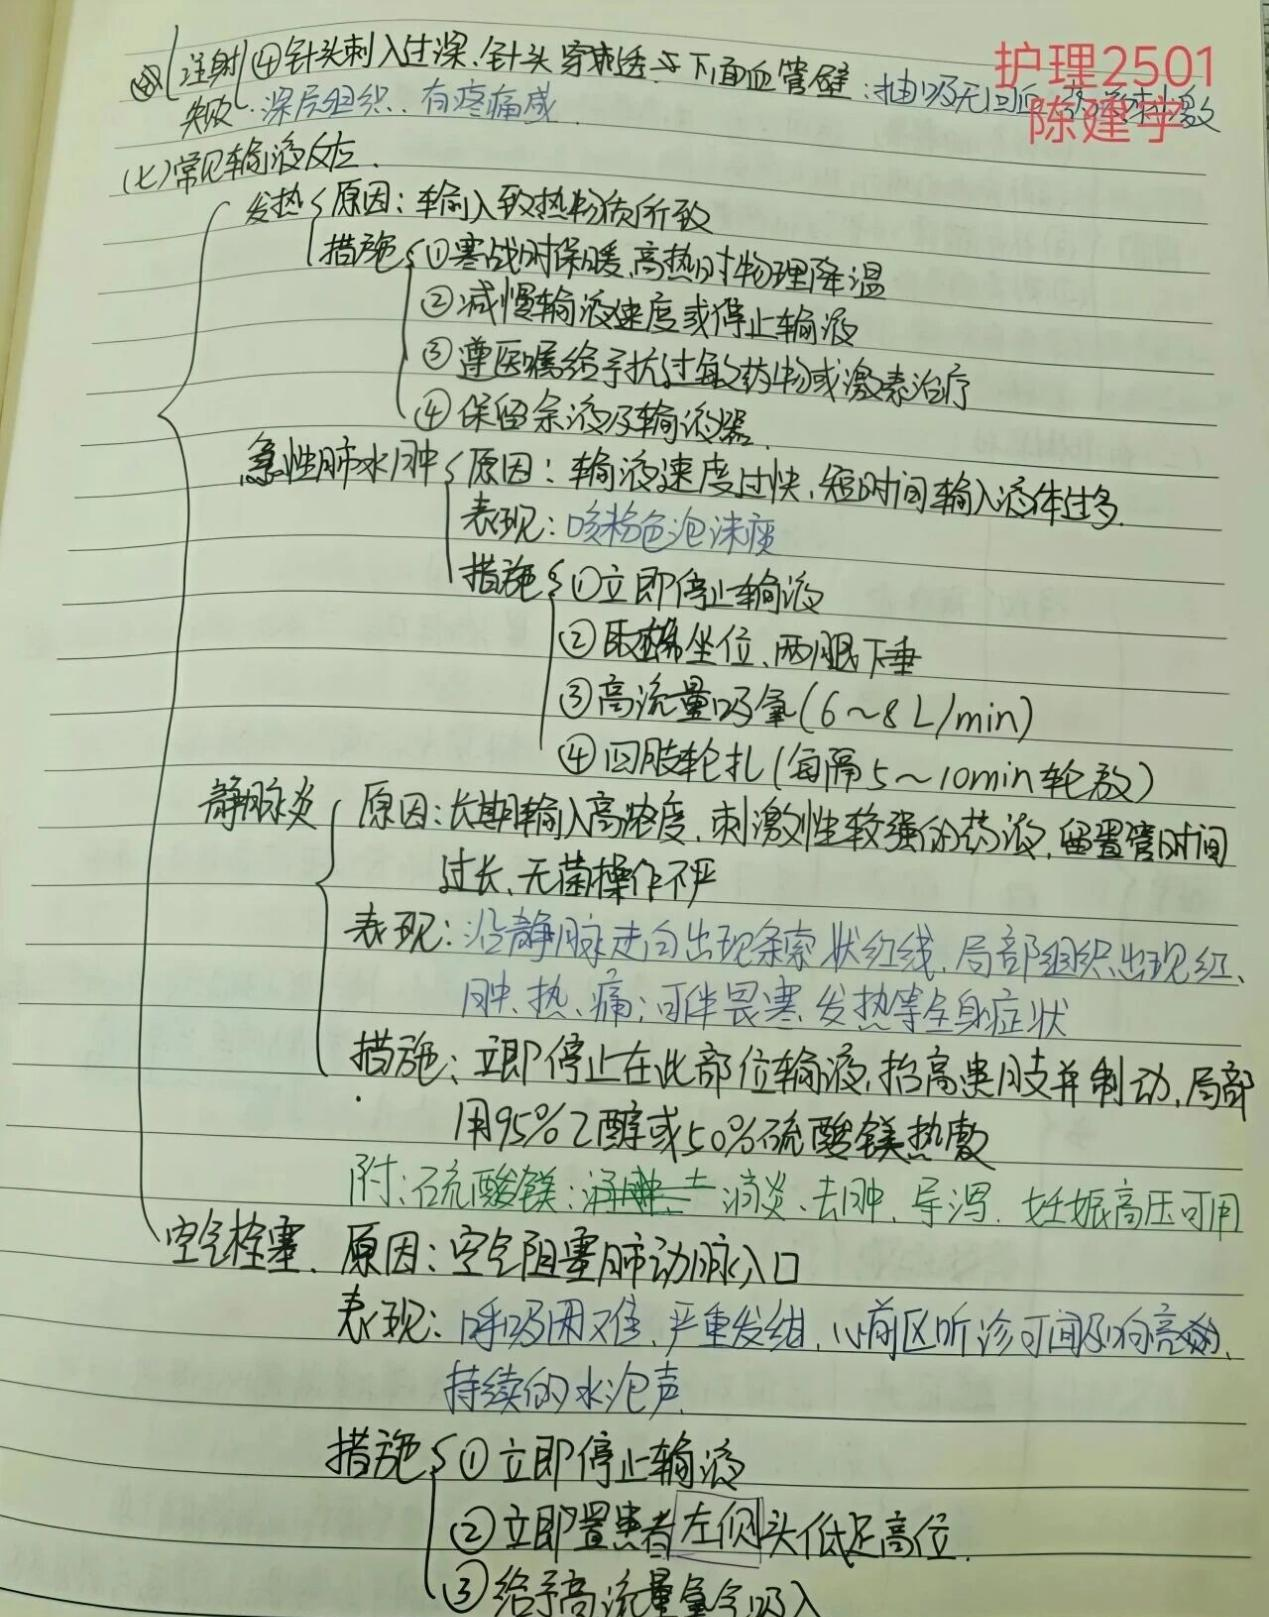 护理2501
陈建宇
注射失败 ④针头刺入过深，针头穿刺透过下面血管壁：抽吸无回血，药液刺激
深层组织、有疼痛感
(七)常见输液反应.
发热 原因：输入致热物质所致
措施 ①寒战时保暖，高热时物理降温
②减慢输液速度或停止输液
③遵医嘱给予抗过敏药物或激素治疗
④保留余液及输液器.
急性肺水肿 原因：输液速度过快，短时间输入液体过多.
表现：咳粉色泡沫痰
措施 ①立即停止输液
②取端坐位、两腿下垂
③高流量吸氧(6～8L/min)
④四肢轮扎(每隔5～10min轮放)
静脉炎 原因：长期输入高浓度，刺激性较强的药液，留置管时间
过长、无菌操作不严
表现：沿静脉走向出现条索状红线，局部组织出现红、
肿、热、痛；可伴畏寒、发热等全身症状
措施：立即停止在此部位输液，抬高患肢并制动，局部
用95%乙醇或50%硫酸镁热敷
附：硫酸镁：消炎、去肿、导泻、妊娠高压可用
空气栓塞. 原因：空气阻塞肺动脉入口
表现：呼吸困难、严重发绀，心前区听诊可闻及响亮的、
持续的水泡声
措施 ①立即停止输液
②立即置患者左侧头低足高位.
③给予高流量氧气吸入